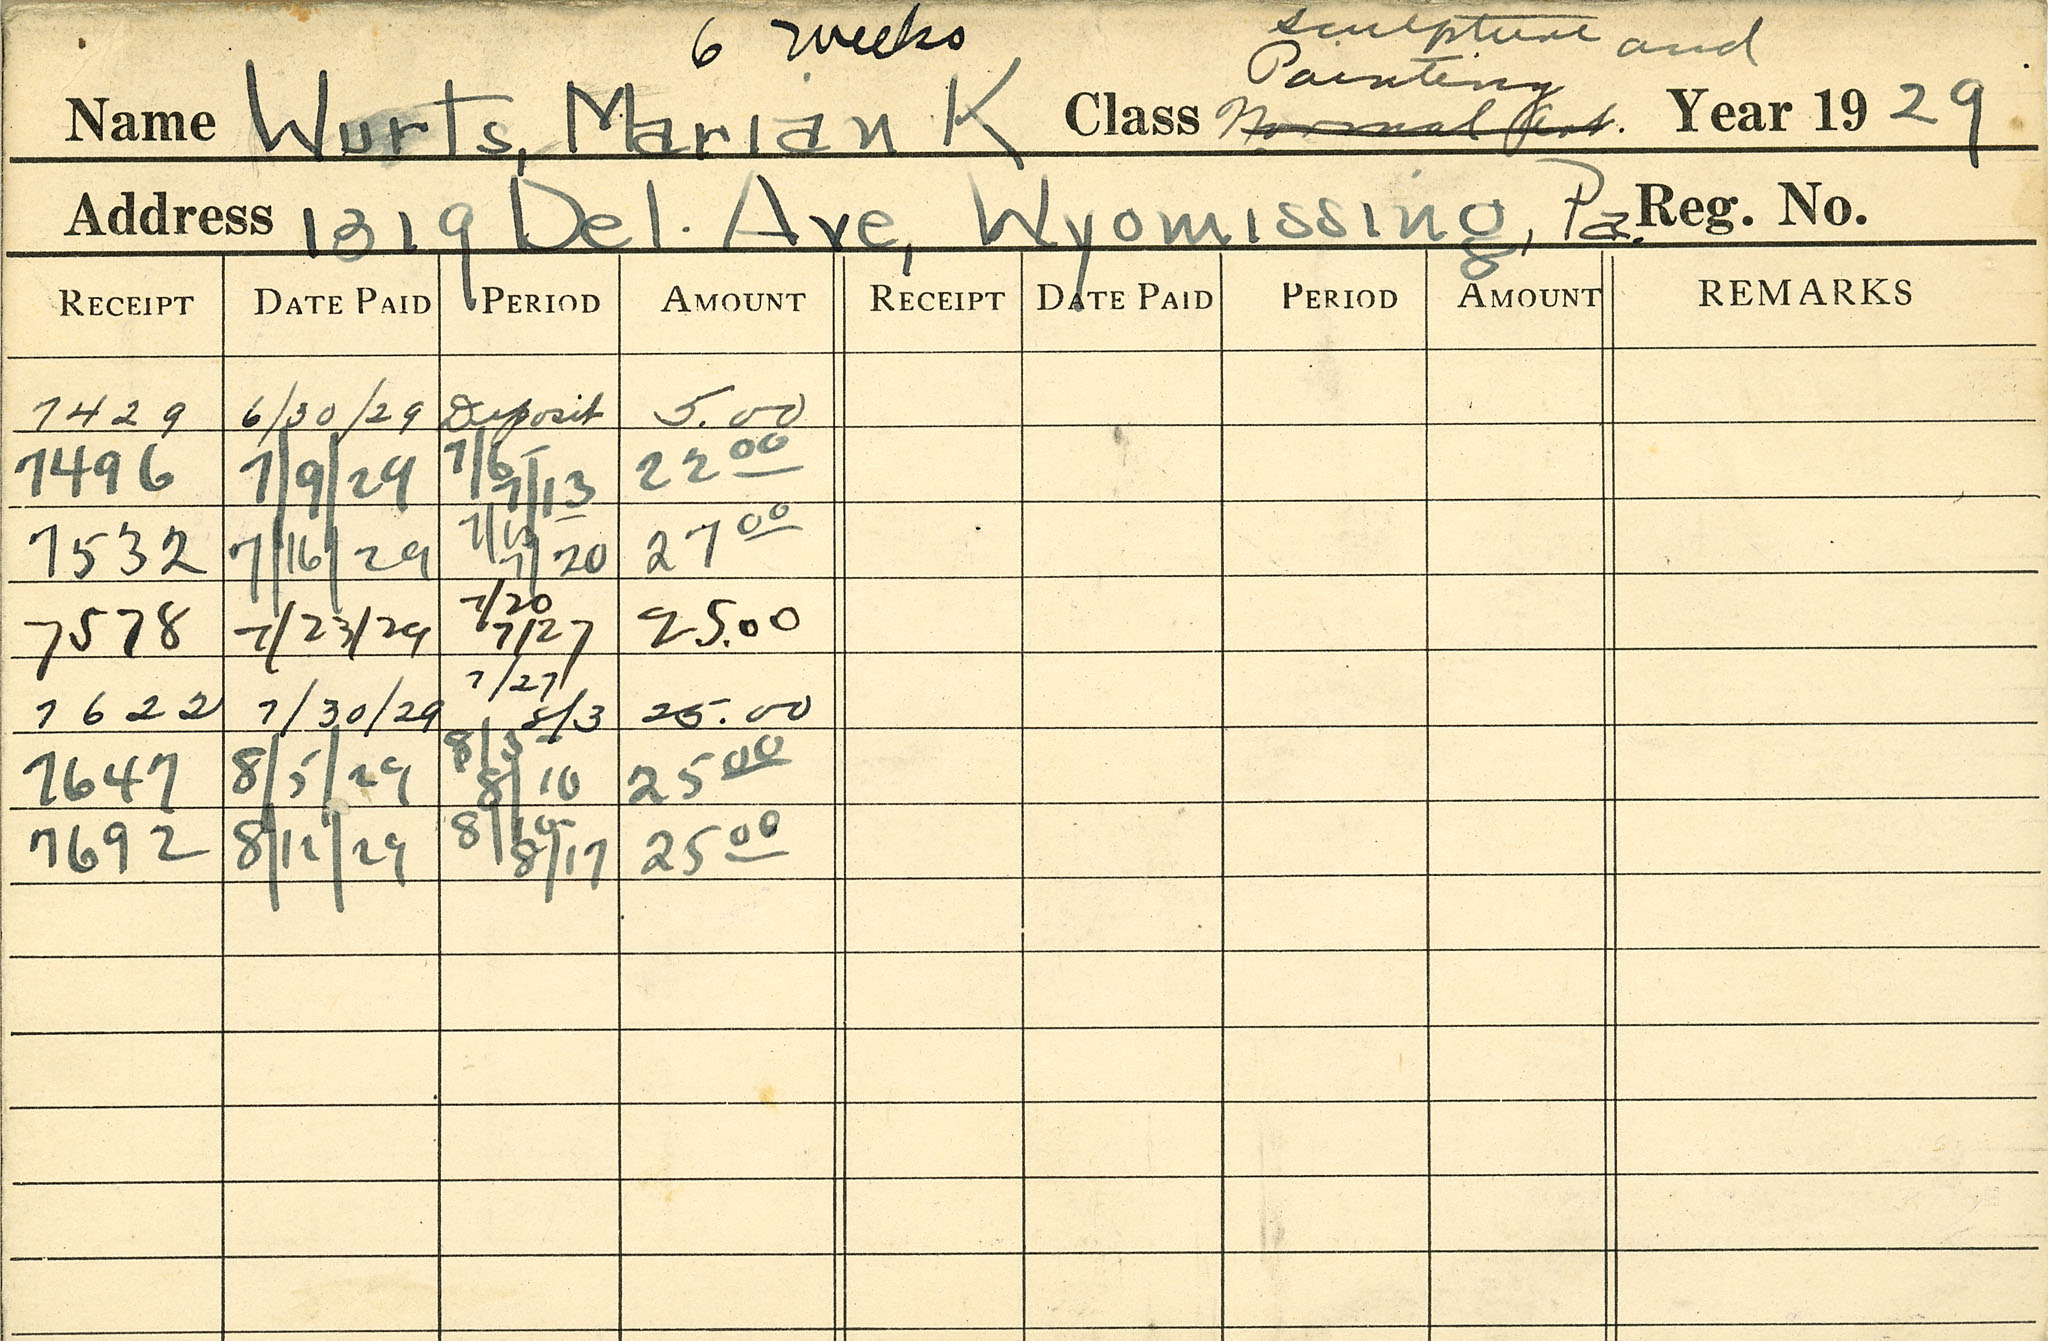 6 weeks
sculpture and
Painting
Name Wurts, Marian K Class Normal Art. Year 1929
Address 1319 Del. Ave, Wyomissing, Pa. Reg. No.
RECEIPT DATE PAID PERIOD AMOUNT RECEIPT DATE PAID PERIOD AMOUNT REMARKS
7429 6/30/29 Deposit 5.00
7496 7/9/29 7/6- 7/13 22 00
7532 7/16/29 7/13 7/20 27 00
7578 7/23/29 7/20 7/27 25.00
7622 7/30/29 7/27 8/3 25.00
7647 8/5/29 8/3- 8/10 25 00
7692 8/12/29 8/10- 8/17 25 00